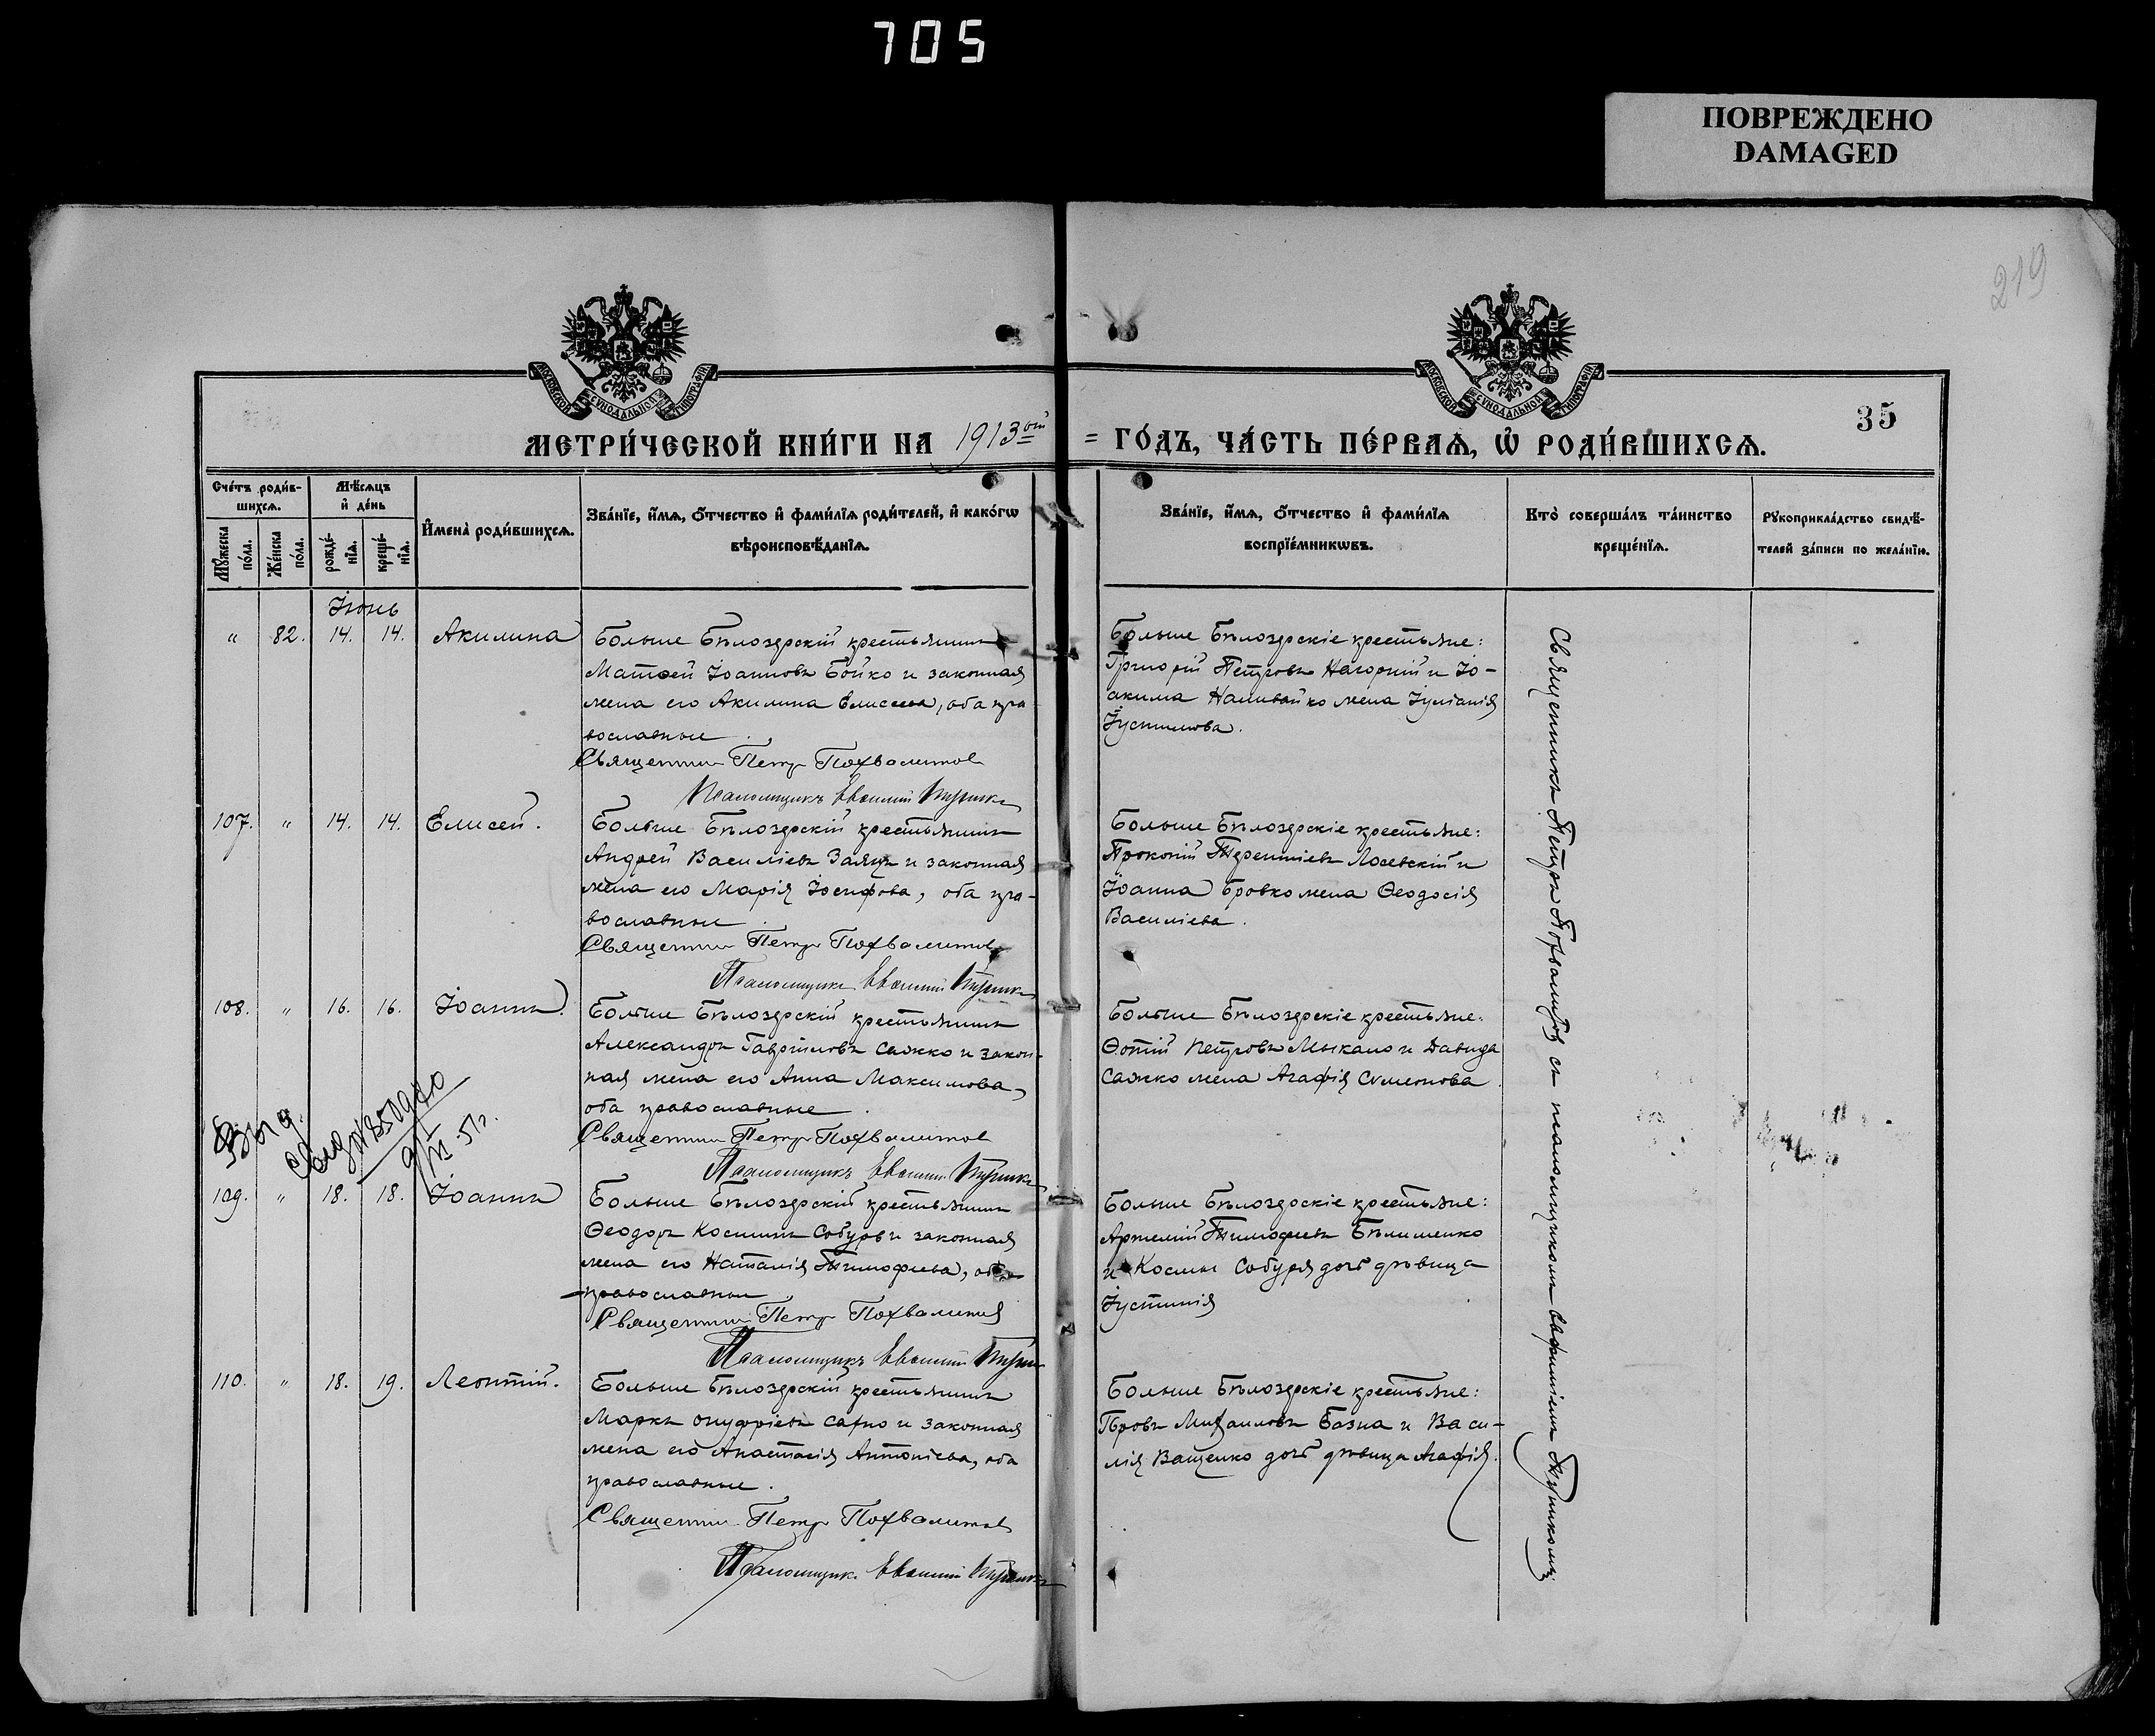 705
ПОВРЕЖДЕНО
DAMAGED
219
МОСКОВСКОЙ СѴНОДАЛЬНОЙ ТИПОГРАФІИ
МОСКОВСКОЙ СѴНОДАЛЬНОЙ ТИПОГРАФІИ
35
МЕТРИ́ЧЕСКОЙ КНИ́ГИ НА 1913ый = ГО́ДЪ, ЧА́СТЬ ПЕ́РВАѦ, Ѡ҆ РОДИ́ВШИХСѦ.
Сче́тъ роди́в-
шихсѧ.
Мꙋ́жеска по́ла.
Же́нска по́ла.
Мѣ́сѧцъ
и҆ де́нь
рожде́-
нїѧ.
креще́-
нїѧ.
И҆мена̀ роди́вшихсѧ.
Зва́нїе, и҆́мѧ, ѻ҆́тчество и҆ фами́лїѧ роди́телей, и҆ како́гѡ
вѣроисповѣ́данїѧ.
Зва́нїе, и҆́мѧ, ѻ҆́тчество и҆ фами́лїѧ
воспрїе́мникѡвъ.
Кто̀ соверша́лъ та́инство
креще́нїѧ.
Рꙋкоприкла́дство свидѣ́-
телей за́писи по жела́нїю.
Іюнь
" 82. 14. 14. Акилина
Больше Бѣлозерскій крестьянинъ
Матѳей Іоанновъ Бойко и законная
жена его Акилина Елисеева, оба пра
вославные.
Священник Петр Похвалитов
Псаломщикъ Евфимій
Больше Бѣлозерскіе крестьяне:
Григорій Петровъ Нагорний и Іо-
акима Наливайко жена Іуліанія
Іустинова.
107. " 14. 14. Елисей.
Больше Бѣлозерскій крестьянинъ
Андрей Васильевъ Заяцъ и законная
жена его Марія Іосифова, оба пра-
вославные.
Священник Петр Похвалитов
Псаломщикъ Евфимій
Больше Бѣлозерскіе крестьяне:
Прокопій Терентіевъ Лосевскій и
Іоанна Бровко жена Ѳеодосія
Васильева.
108. " 16. 16. Іоаннъ.
Больше Бѣлозерскій крестьянинъ
Александръ Гавріиловъ Сажко и закон-
ная жена его Анна Максимова,
оба православные.
Священник Петр Похвалитов
Псаломщикъ Евфимій
Больше Бѣлозерскіе крестьяне:
Ѳотій Петровъ Мыкало и Давида
Сажко жена Агафія Симеонова
Выд.
109. " 18. 18. Іоаннъ
Больше Бѣлозерскій крестьянинъ
Ѳеодоръ Косминъ Собуръ и законная
жена его Наталія Тимофеева, оба
православные
Священник Петр Похвалитов
Псаломщикъ Евфимій
Больше Бѣлозерскіе крестьяне:
Артемій Тимофеевъ Бѣлименко
и Космы Собуря дочь дѣвица
Іустинія
110. " 18. 19. Леонтій.
Больше Бѣлозерскій крестьянинъ
Маркъ Онуфріевъ Сахно и законная
жена его Анастасія Антоніева, оба
православные.
Священник Петр Похвалитов
Псаломщик. Евфимій
Больше Бѣлозерскіе крестьяне:
Михаиловъ Базна и Васи-
лія Ващенко дочь дѣвица Агафія.
Священникъ Петръ Похвалитовъ съ псаломщикомъ Евфиміемъ